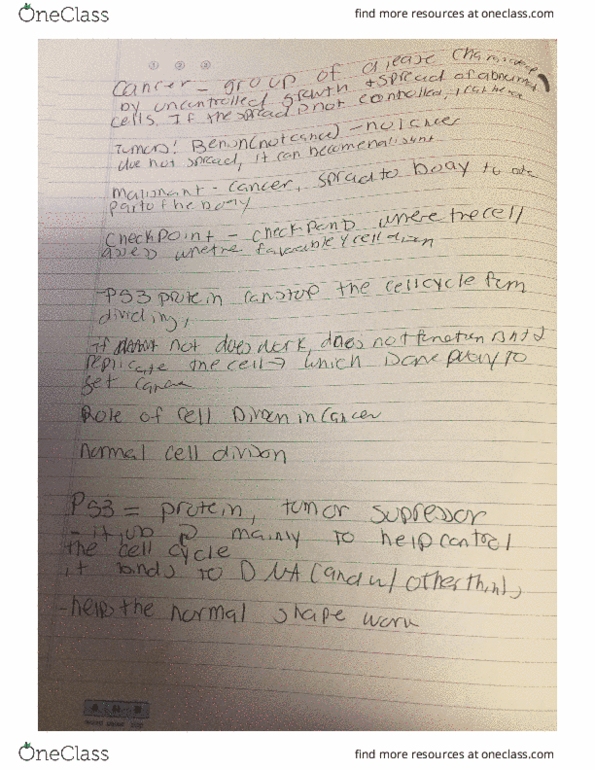 OneClass
find more resources at oneclass.com
Cancer - group of disease
by uncontrolled growth + spread of abnormal
cells. If the spread is not controlled, it can
Tumors! Benign (not cancer) - not cancer
due not spread, it can become
malignant - cancer, spread to body to
part of the body
Checkpoint - checkpoint where the cell
whether favorable y cell
- P53 protein can stop the cell cycle from
dividing,
if not does work, does not function
replicate the cell → which is one way to
get cancer
Role of Cell Division in Cancer
normal cell division
P53 = protein, tumor supressor
- it job is mainly to help control
the cell cycle
it binds to DNA (and w/ other things
- help the normal shape work
OneClass
find more resources at oneclass.com